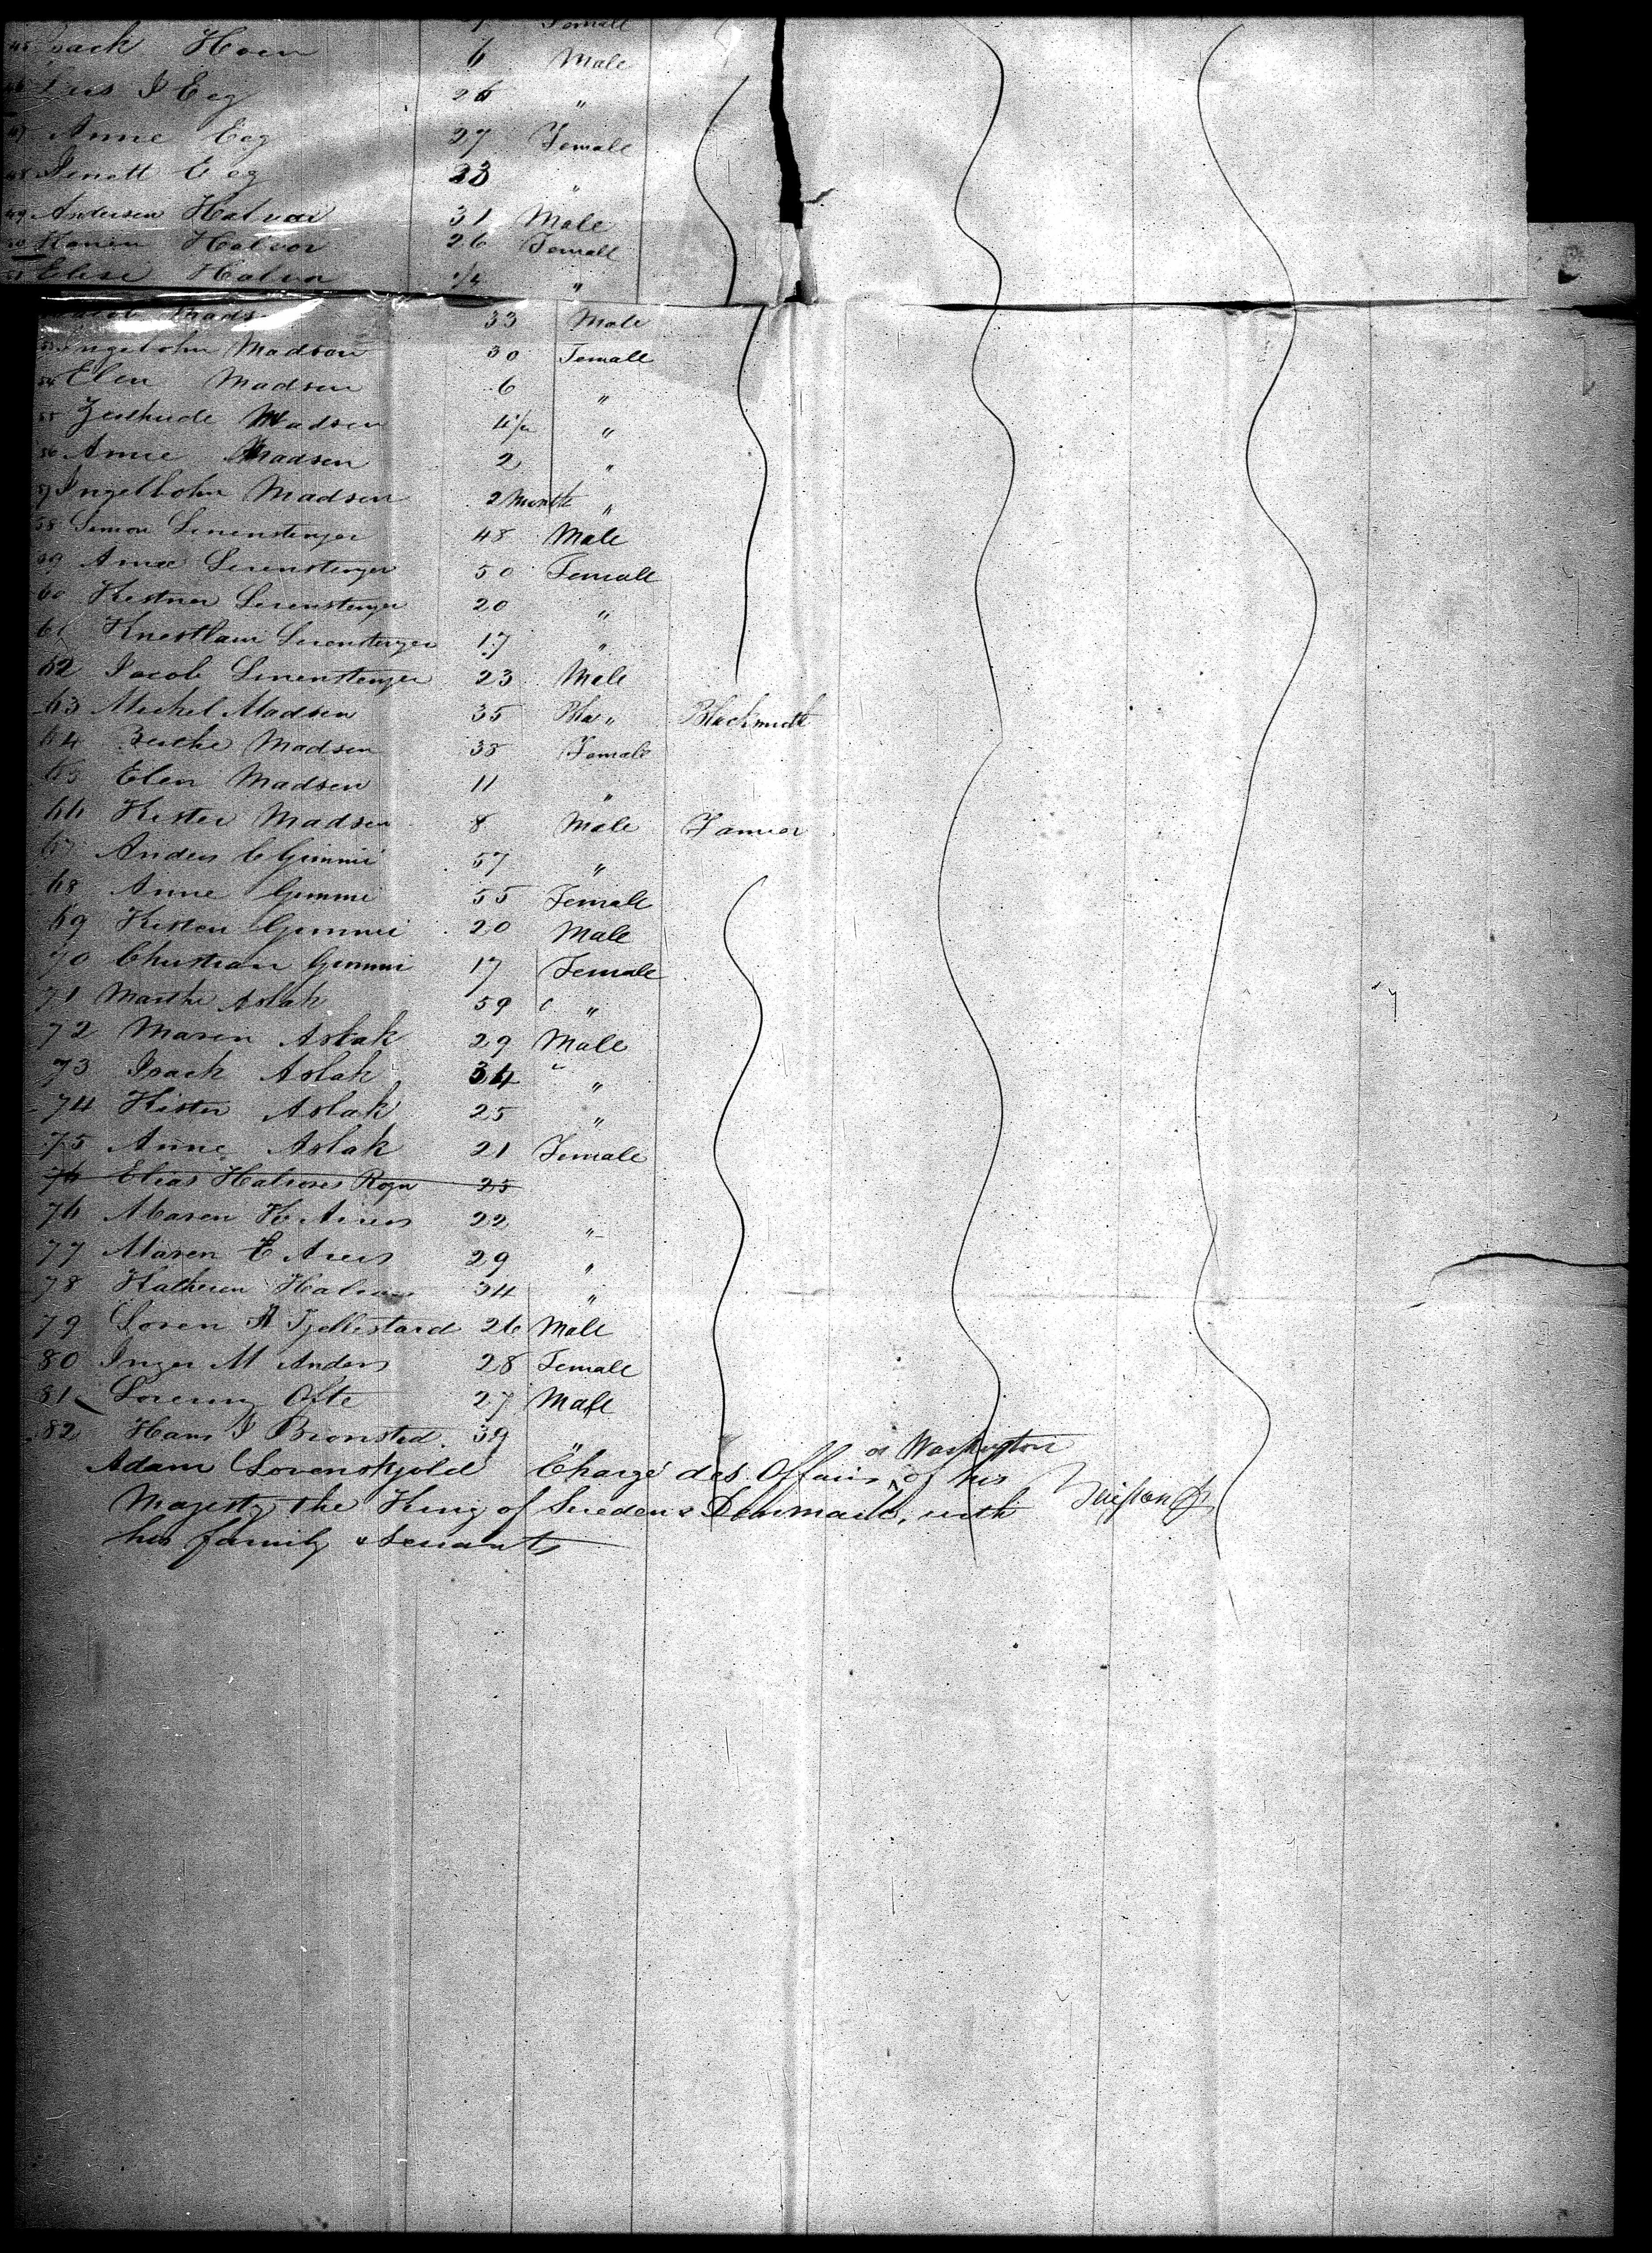 Female
45 Isack Hoen 6 Male
46 Lars I Eeg 26 "
47 Anne Eeg 27 Female
48 Jenett Eeg 23 "
49 Andersen Halvor 31 Male
50 Maren Halvor 26 Female
51 Elise Halvor 1/4 "
Mads 33 Male
53 Ingebohn Madsen 30 Female
54 Elen Madsen 6 "
55 Zerthude Madsen 4 1/2 "
56 Anne Madsen 2 "
57 Ingelbohn Madsen 2 Month "
58 Simon Lenenstenger 48 Male
59 Anne Lenenstenger 50 Female
60 Kestner Lenenstenger 20 "
61 Knestlani Lenenstenger 17 "
62 Jacob Lenenstenger 23 Male
63 Michel Madsen 35 " Blacksmith
64 Berthe Madsen 38 Female
65 Elen Madsen 11 "
66 Kister Madsen 8 Male Farmer
67 Anders C Gimmi 57 "
68 Anne Gimmi 55 Female
69 Kisten Gimmi 20 Male
70 Christian Gimmi 17 Female
71 Marthe Aslak 59 "
72 Maren Aslak 29 Male
73 Isack Aslak 34 "
74 Kister Aslak 25 "
75 Anne Aslak 21 Female
76 Elias Halvores Rogn 25
76 Maren K Aires 22 "
77 Maren E Aires 29 "
78 Katheren Halvor 34 "
79 Soren A Tjellestard 26 Male
80 Inger M Anders 28 Female
81 Ofte 27 Male
82 Hans I Bronsted 39 "
Adam Lovenskjold Chargé des Affairs at Washington of his
Majesty the King of Sweden & Denmark, with
his family & servants